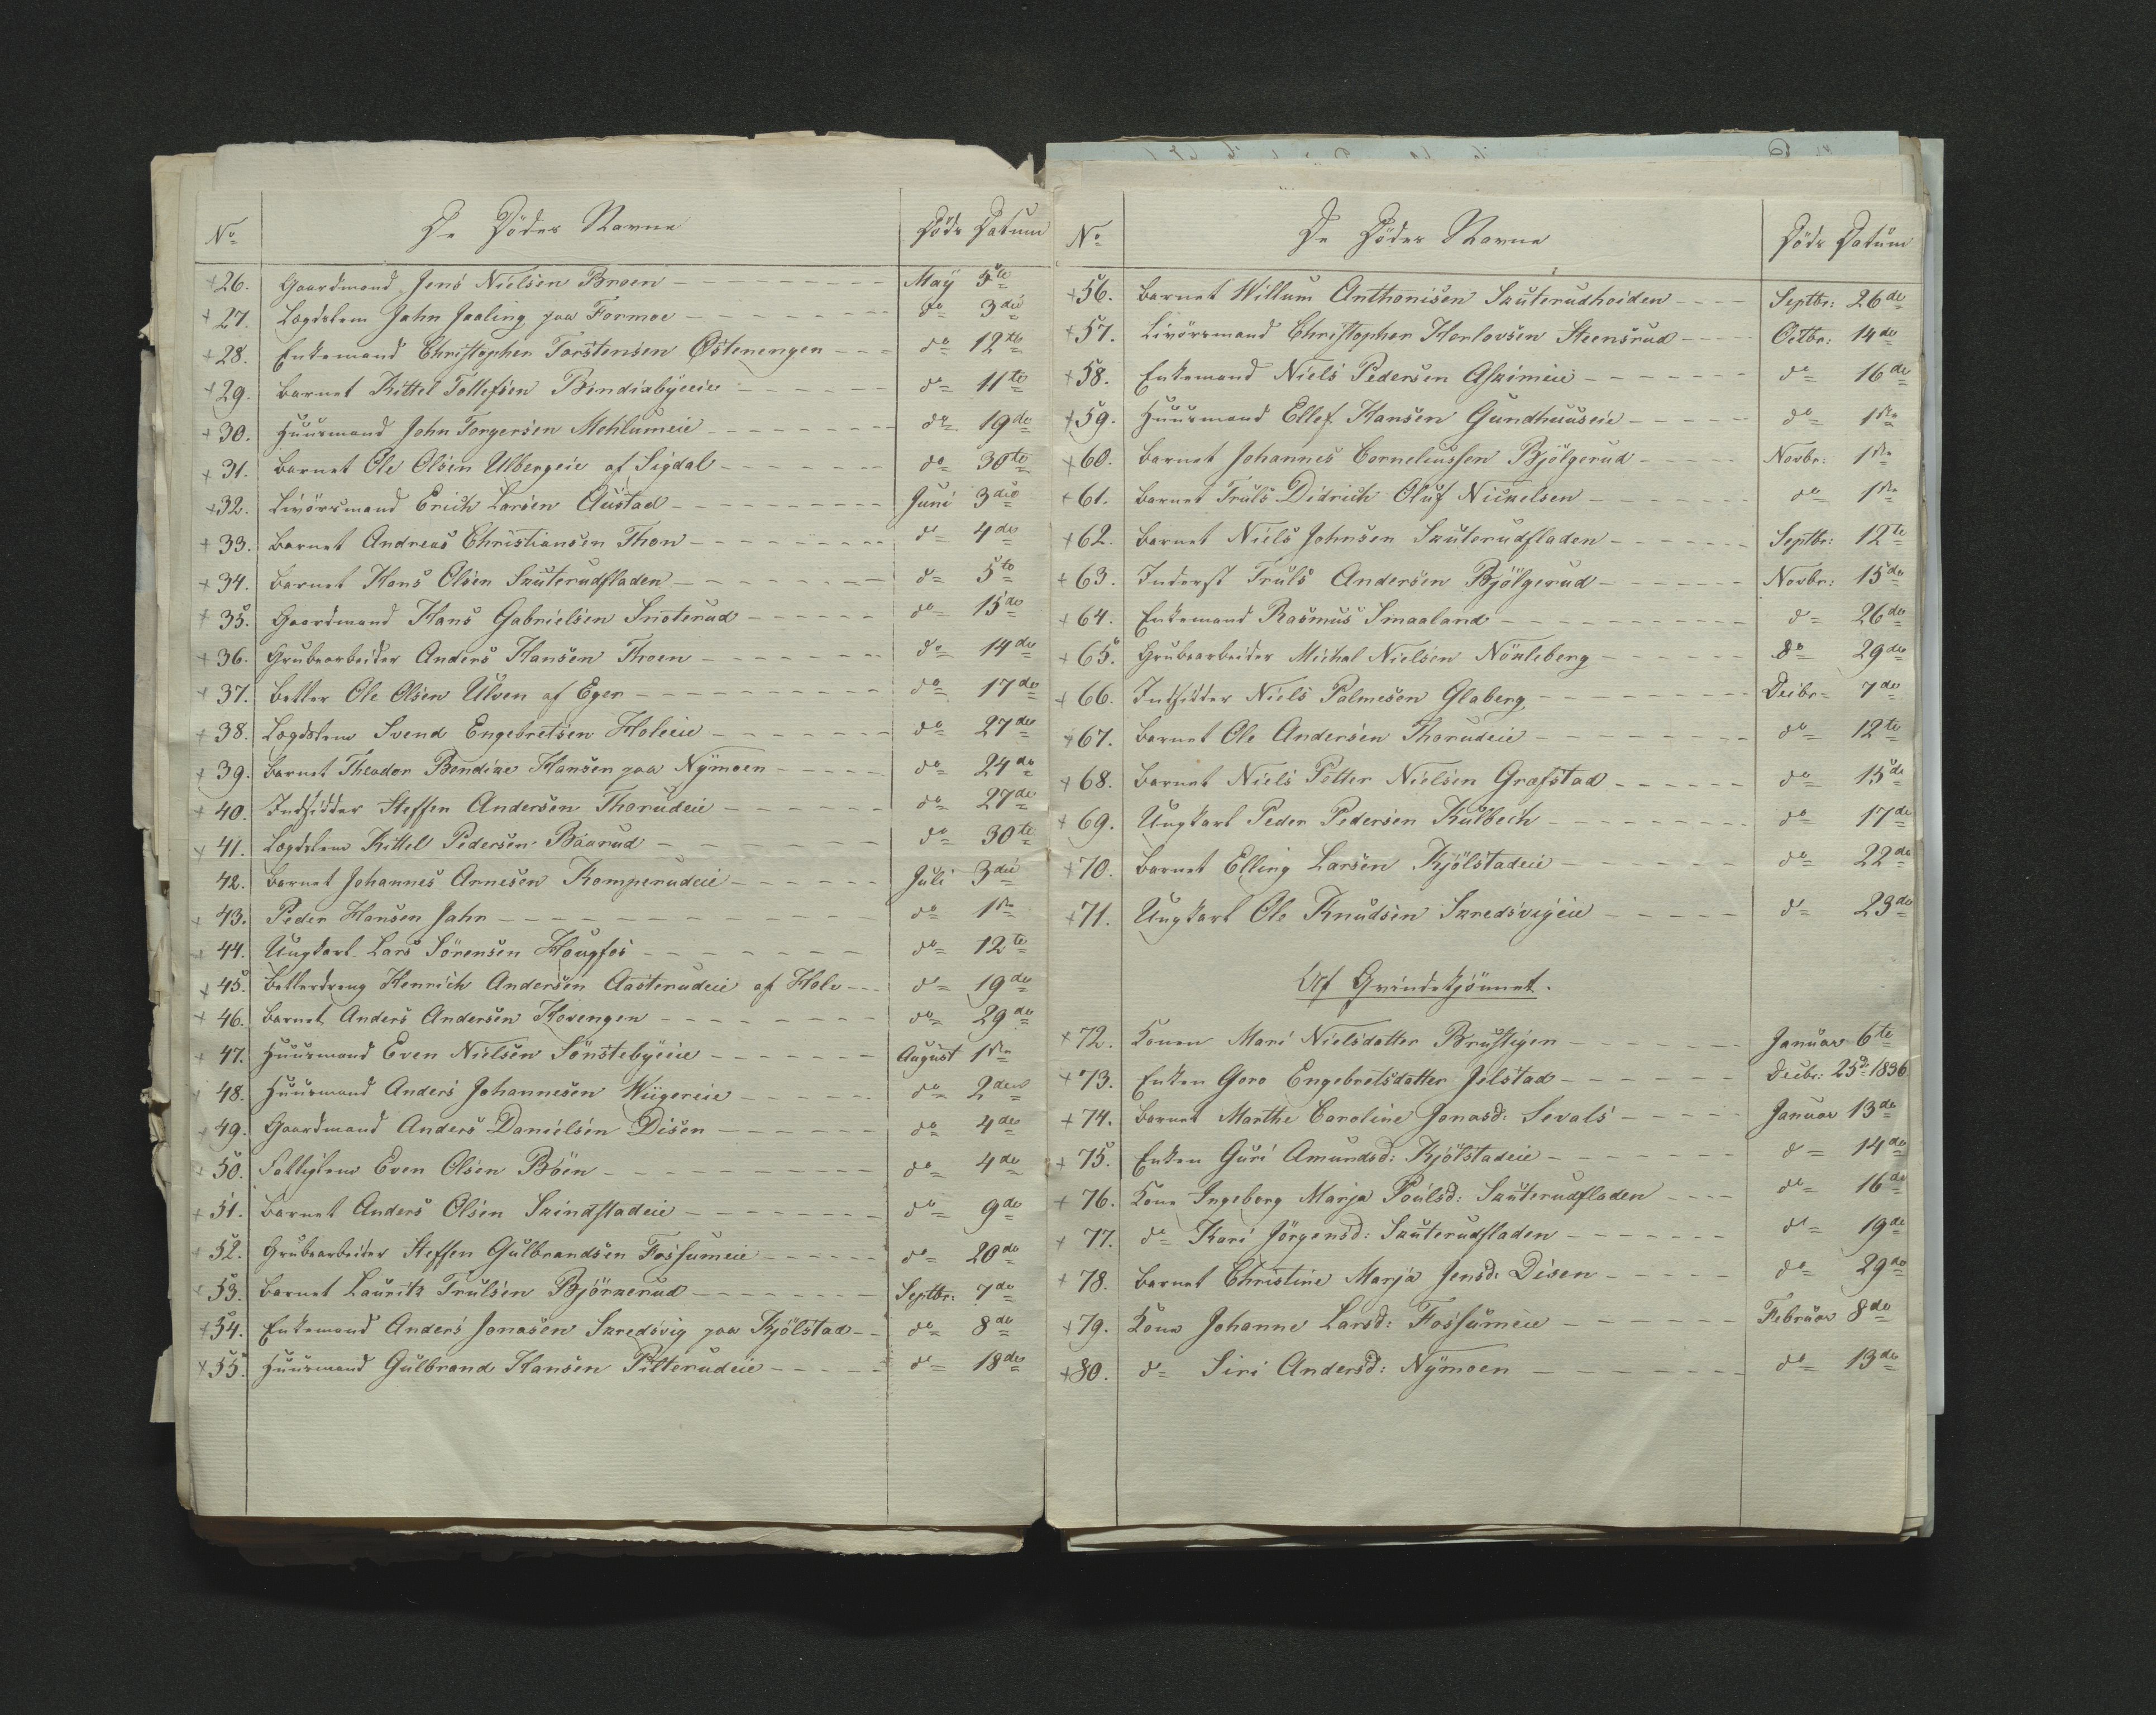 No De Dödes Navne Döds Datum
+ 26. Gaardmand Jens Nielsen Broen May 5te
+ 27. Logdslem Jahn Jaaling paa Formoe do 3die
+ 28. Enkemand Christopher Torstensen Østenengen do 12te
+ 29. Barnet Kittel Tollefsen Bindisbyeeie do 11te
+ 30. Huusmand John Torgersen Mehlumeie do 19de
+ 31. Barnet Ole Olsen Ulbergeie af Sigdal do 30te
+ 32. Livörsmand Erich Larsen Austad Juni 3die
+ 33. Barnet Andreas Christiansen Thon do 4de
+ 34. Barnet Hans Olsen Skuterudfladen do 5te
+ 35. Gaardmand Hans Gabrielsen Snoterud do 15de
+ 36. Grubearbeider Anders Hansen Thoen do 14de
+ 37. Betler Ole Olsen Ulven af Eger do 17de
+ 38. Logdslem Svend Engebretsen Holeeie do 27de
+ 39. Barnet Theodor Bendixe Hansen paa Nÿmoen do 24de
+ 40. Indsidder Steffen Andersen Thorudeie do 27de
+ 41. Logdslem Kittel Pedersen Baarud do 30te
42. Barnet Johannes Arnesen Komperudeie Juli 3die
+ 43. Peder Hansen Jahn do 1ste
+ 44. Ungkarl Lars Sörensen Hougfos do 12te
+ 45. Betlerdreng Henrich Andersen Aasterudeie af Hole do 19de
+ 46. Barnet Anders Andersen Hovengen do 29de
+ 47. Huusmand Even Nielsen Sönstebÿeie August 1ste
+ 48. Huusmand Anders Johannesen Wiigereie do 2den
+ 49. Gaardmand Anders Danielsen Disen do 4de
+ 50. Fattiglem Even Olsen Böen do 4de
+ 51. Barnet Anders Olsen Skindstadeie do 9de
+ 52. Grubearbeider Steffen Gulbrandsen Fossumeie do 20de
+ 53. Barnet Lauritz Trulsen Björnerud Septbr: 7de
+ 54. Enkemand Anders Jonasen Skredsvig paa Kjölstad do 8de
+ 55. Huusmand Gulbrand Hansen Pitterudeie do 18de
No De Dödes Navne Döds Datum
+ 56. Barnet Willum Anthonisen Skuterudheiden Septbr: 26de
+ 57. Livörsmand Christopher Herlovsen Steensrud Octbr: 14de
+ 58. Enkemand Niels Pedersen Askimeie do 16de
+ 59. Huusmand Ellef Hansen Gundhuuseie do 1ste
+ 60. Barnet Johannes Corneliussen Bjölgerud Novbr: 1ste
+ 61. Barnet Truls Didrich Oluf Nickelsen do 1ste
+ 62. Barnet Niels Johnsen Skuterudfladen Septbr: 12te
+ 63. Inderst Truls Andersen Bjölgerud Novbr: 15de
+ 64. Enkemand Rasmus Smaaland do 26de
+ 65. Grubearbeider Michal Nielsen Nökleberg do 29de
+ 66. Indsidder Niels Palmesen Glaberg Decbr 7de
+ 67. Barnet Ole Andersen Thorudeie do 12te
+ 68. Barnet Niels Petter Nielsen Græfstad do 15de
+ 69. Ungkarl Peder Pedersen Kulbech do 17de
+ 70. Barnet Elling Larsen Kjölstadeie do 22de
+ 71. Ungkarl Ole Knudsen Skredsvigeie do 23de
Af Qvindekjönnet.
+ 72. Konen Mari Nielsdatter Brustigen Januar 6te
+ 73. Enken Goro Engebretsdatter Jelstad Decbr: 25de 1836
+ 74. Barnet Marthe Caroline Jonasd: Sevals Januar 13de
+ 75. Enken Guri Amundsd: Kjölstadeie do 14de
+ 76. Kone Ingeborg Marja Poulsd: Skuterudfladen do 16de
+ 77. do Kari Jörgensd: Skuterudfladen do 19de
+ 78. Barnet Christine Marja Jensd: Disen do 29de
+ 79. Kone Johanne Larsd: Fossumeie Februar 8de
+ 80. do Siri Andersd: Nÿmoen do 13de